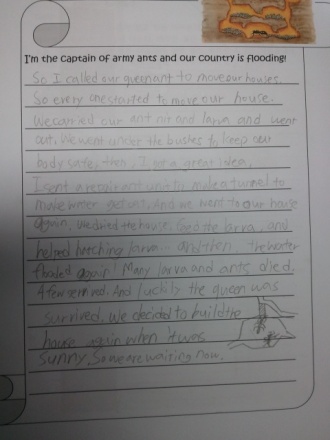 I'm the captain of army ants and our country is flooding!
So I called our queen ant to move our houses.
So every one started to move our house.
We carried our ant and larva and went
out. We went under the bushes to keep our
body safe, then, I got a great idea,
I sent a repair ant to make a tunnel to
make water get out, And we went to our house
again, We dried the house, feed the larva, and
helped hatching larva... and then, the water
flooded again! Many larva and ants died.
A few survived. And luckily the queen was
survived, We decided to build the
house again when it was
sunny, So we are waiting now.